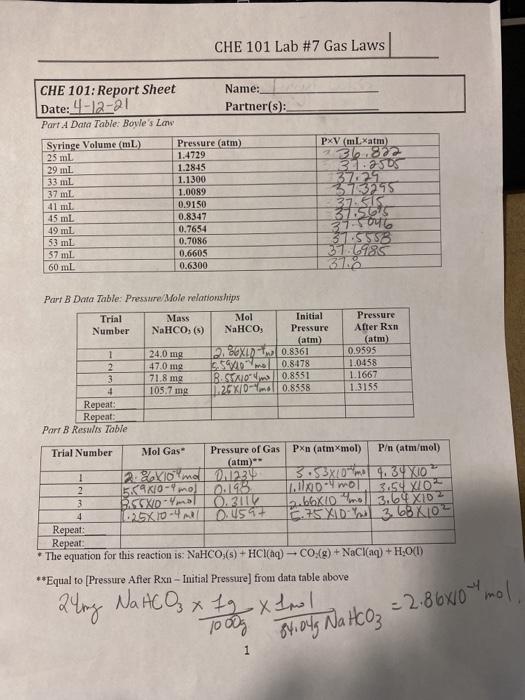 CHE 101 Lab #7 Gas Laws
CHE 101: Report Sheet Name:
Date: 4-12-21 Partner(s):
Part A Data Table: Boyle's Law
Syringe Volume (mL) Pressure (atm) P×V (mL×atm)
25 mL 1.4729 36.822
29 mL 1.2845 37.2505
33 mL 1.1300 37.29
37 mL 1.0089 37.3295
41 mL 0.9150 37.515
45 mL 0.8347 37.5615
49 mL 0.7654 37.5046
53 mL 0.7086 37.5558
57 mL 0.6605 37.6485
60 mL 0.6300 37.8
Part B Data Table: Pressure/Mole relationships
Trial Number Mass NaHCO₃ (s) Mol NaHCO₃ Initial Pressure (atm) Pressure After Rxn (atm)
1 24.0 mg 2.86x10⁻⁴ mol 0.8361 0.9595
2 47.0 mg 5.59x10⁻⁴ mol 0.8478 1.0458
3 71.8 mg 8.55x10⁻⁴ mol 0.8551 1.1667
4 105.7 mg 1.25x10⁻⁴ mol 0.8558 1.3155
Repeat:
Repeat:
Part B Results Table
Trial Number Mol Gas* Pressure of Gas (atm)** P×n (atm×mol) P/n (atm/mol)
1 2.86x10⁻⁴ mol 0.1234 3.53x10 4.34x10²
2 5.59x10⁻⁴ mol 0.198 1.11x10⁻⁴ mol 3.54x10²
3 8.55x10⁻⁴ mol 0.3116 2.66x10⁻⁴ mol 3.64x10²
4 1.25x10⁻⁴ mol 0.4597 5.75x10 3.68x10²
Repeat:
Repeat:
* The equation for this reaction is: NaHCO₃(s) + HCl(aq) → CO₂(g) + NaCl(aq) + H₂O(l)
**Equal to [Pressure After Rxn – Initial Pressure] from data table above
24mg NaHCO₃ x 1g/1000g x 1mol/84.04g NaHCO₃ = 2.86x10⁻⁴ mol.
1